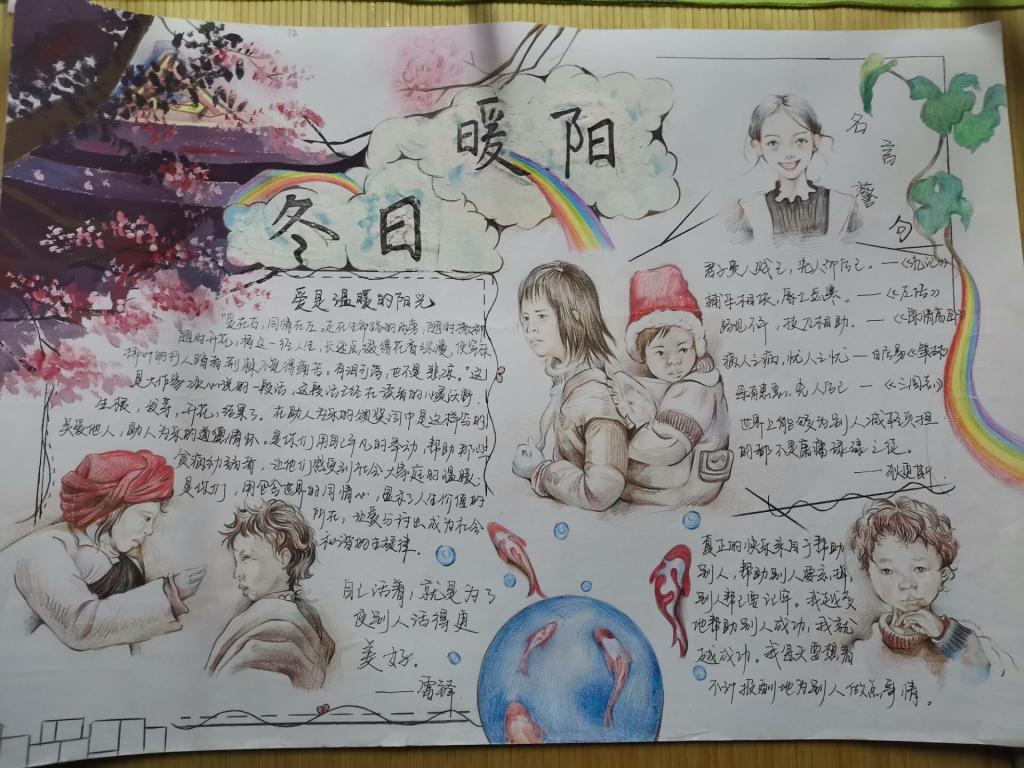 32
暖阳
冬日
爱是温暖的阳光
"爱在右，同情在左，走在生命路的两旁，随时播种
随时开花，将这一径人生，长途点缀得花香弥漫，使穿枝
拂叶的行人踏着荆棘不觉得痛苦。有泪可落，也不是悲凉。"这
是大作家冰心说的一段话，这段话已经在读者的心灵沃野，
生根，发芽，开花，结果了。在助人为乐的颁奖词中是这样写的
关爱他人，助人为乐的道德情怀。是你们用自己平凡的举动，帮助那些
贫病幼弱者，让他们感受到社会大家庭的温暖；
是你们，用包含世界的同情心，显示了人生价值的
所在，让爱与付出成为社会
和谐的主旋律。
自己活着，就是为了
使别人活得更
美好。
——雷锋
名言警句
君子贵人贱己，先人而后己。——《礼记》
辅车相依，唇亡齿寒。——《左传》
路见不平，拔刀相助。——《陈情高卧》
病人之病，忧人之忧——白居易《策林》
每有患急，先人后己——《三国志》
世界上能够为别人减轻负担
的都不是庸庸碌碌之徒。
——狄更斯
真正的快乐来自于帮助
别人，帮助别人要忘掉，
别人帮己要记牢。我越多
地帮助别人成功，我就
越成功。我每天要想着
不计报酬地为别人做点事情。